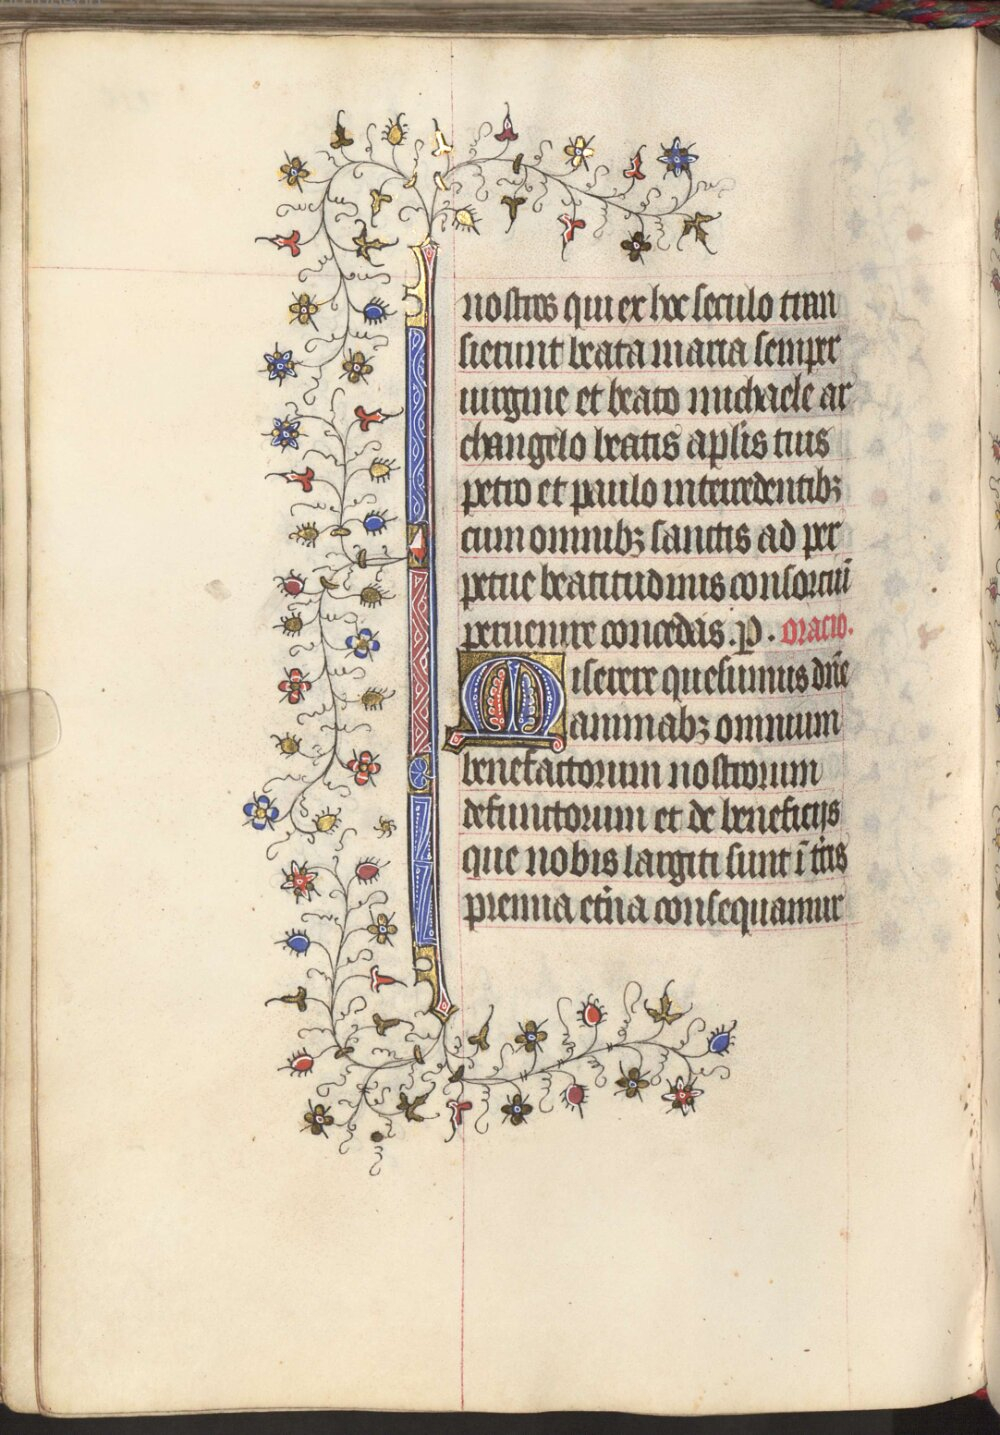 nostros qui ex hoc seculo tran
sierunt beata maria semper
uirgine et beato michaele ar
changelo beatis aplis tuis
petro et paulo intercedentibꝫ
cum omnibꝫ sanctis ad per
petue beatitudinis consorciū
peruenire concedas. P. oracio.
Miserere quesumus dn̄e
animabꝫ omnium
benefactorum nostrorum
defunctorum et de beneficijs
que nobis largiti sunt ī t̄ris
premia et̄na consequantur